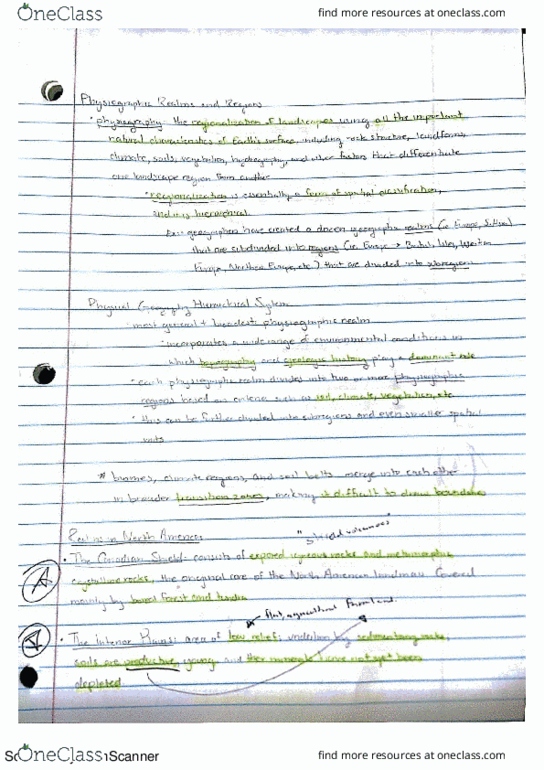 OneClass
find more resources at oneclass.com
Physiographic Realms and Regions
• physiography: the regionalization of landscapes using all the important
natural characteristics of Earth's surface, including rock structure, landforms,
climate, soils, vegetation, hydrography, and other factors that differentiate
one landscape region from another
• regionalization is essentially a form of spatial classification,
and is hierarchical
geographers have created a dozen geographic realms (ie. Europe,
that are subdivided into regions (ie. Europe → British Isles, Western
Europe, Northern Europe, etc.) that are divided into subregions
Physical Geography Hierarchical System
most general + broadest: physiographic realm
incorporates a wide range of environmental conditions in
which and geologic history play a dominant role
• each physiographic realm divides into two or more physiographic
regions based on criteria such as soil, climate, vegetation, etc
• this can be further divided into subregions and even smaller spatial
units
* biomes, climate regions, and soil belts merge into each other
in broader transition zones, making it difficult to draw boundaries
"shield volcanoes"
Realms in North America
• The Canadian Shield: consists of exposed igneous rocks and metamorphic
crystalline rocks, the original core of the North American landmass. Covered
mainly by boreal forest and tundra
flat, agricultural farmland
• The Interior Plains: area of low relief; underlain by sedimentary rocks;
soils are productive, young and their minerals have not yet been
depleted
OneClass
Scanner
find more resources at oneclass.com